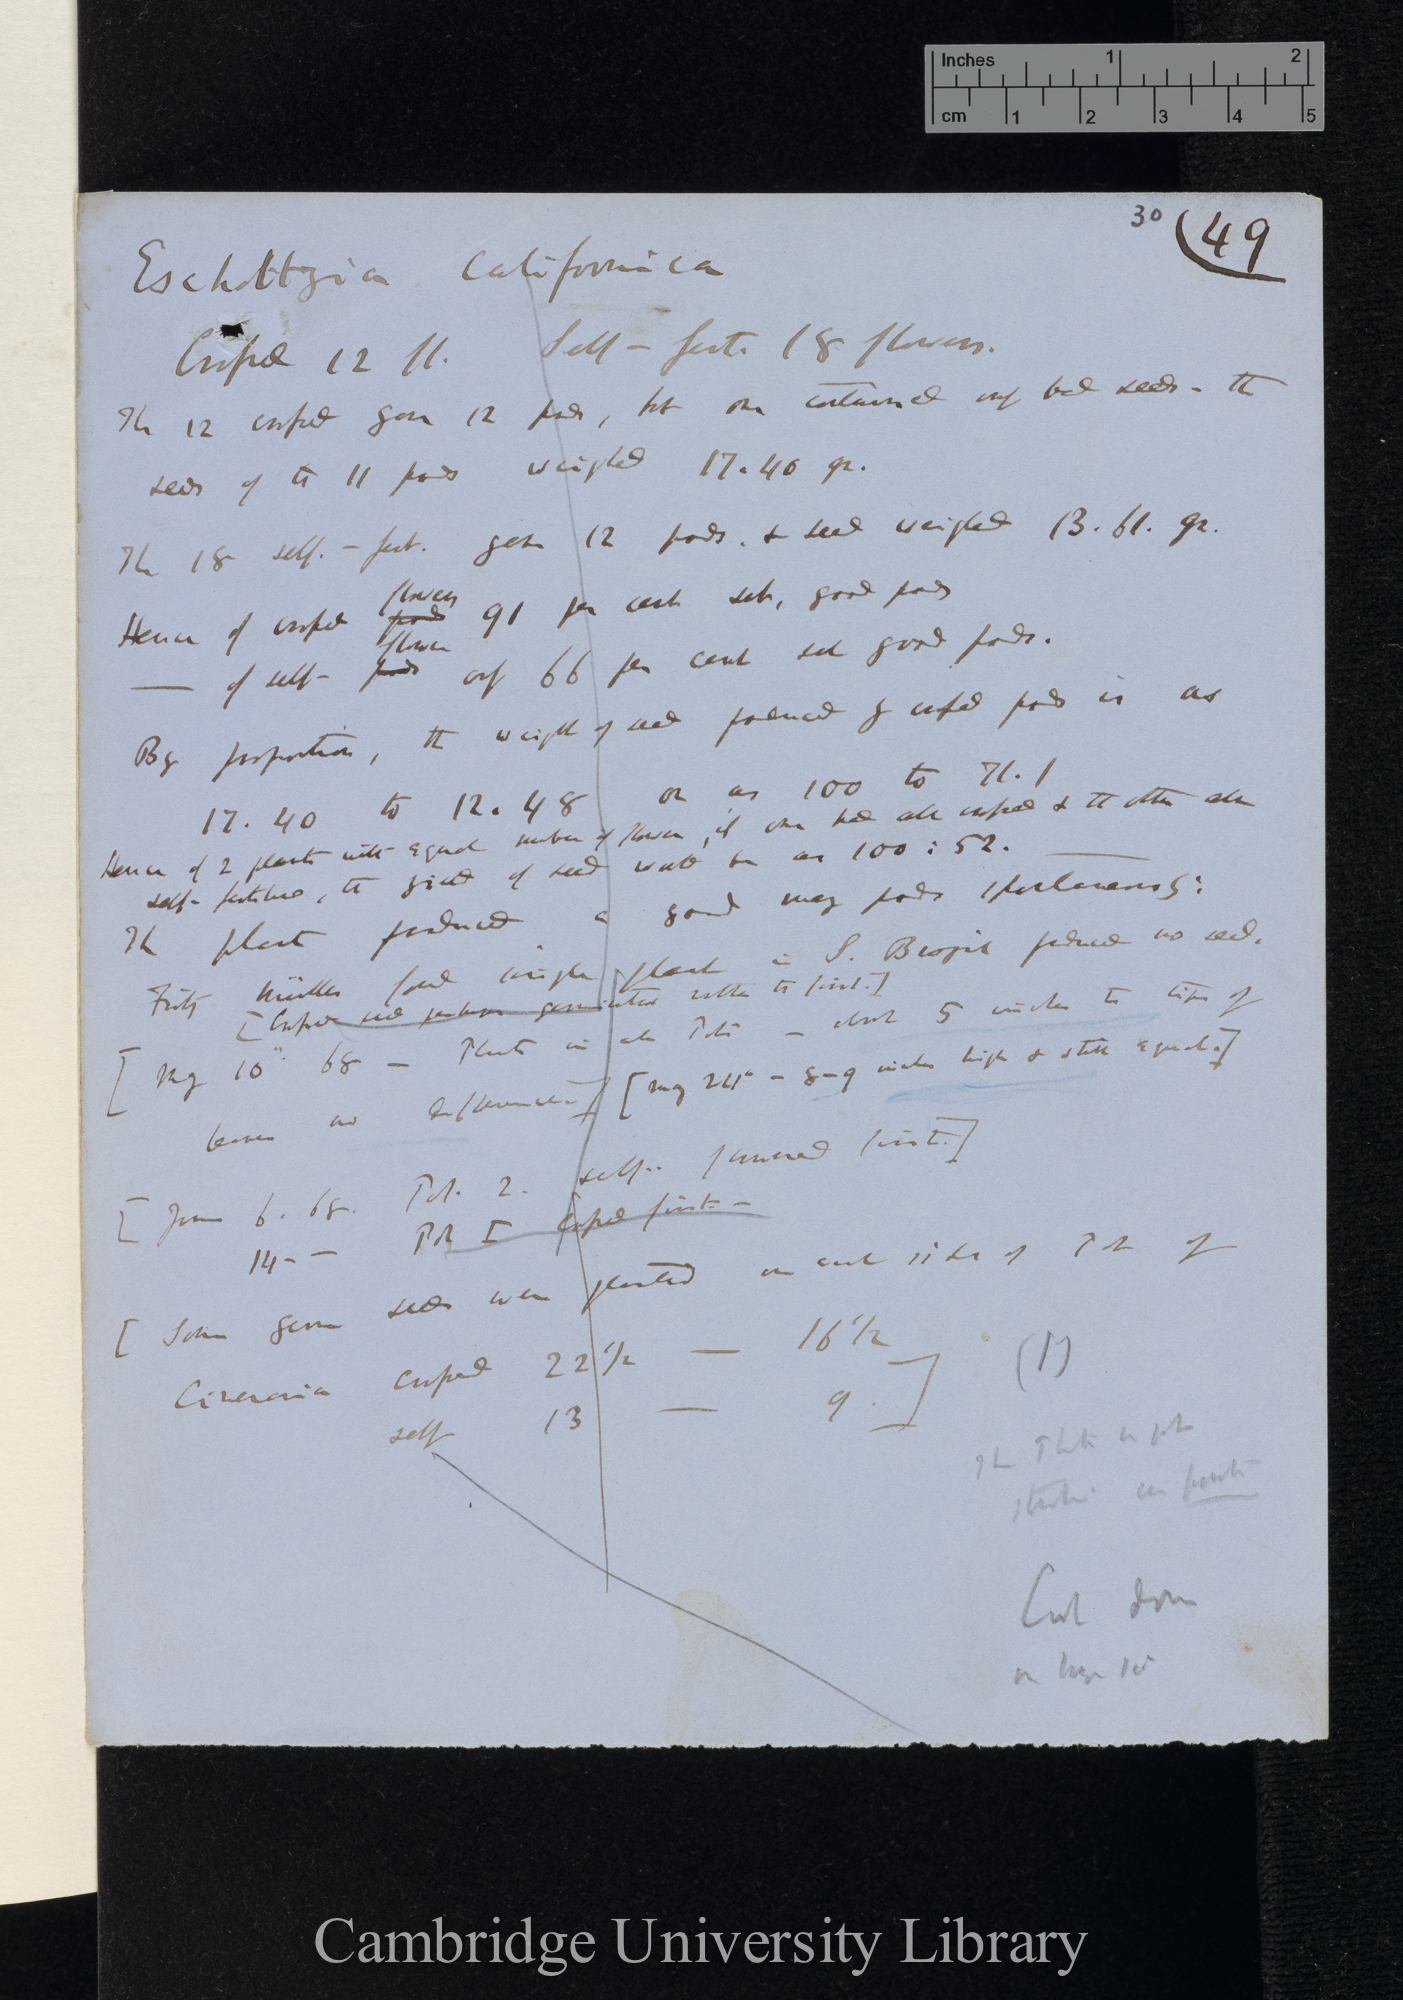 Inches 1 2
cm 1 2 3 4 5
30 (49
Escholtzia Californica
Crossed 12 fl. Self-fert. 18 flowers.
The 12 crossed gave 12 pods, but one contained only bad seeds - the
seeds of the 11 pods weighed 17.40 gr.
The 18 self.-fert. gave 12 pods. & seed weighed 13.61. gr.
flowers
Hence of crossed pods 91 per cent set, good pods
flowers
— of self- pods only 66 per cent set good pods.
By proportion, the weight of seed produced by crossed pods is as
17.40 to 12.48 or as 100 to 71.1
Hence of 2 plants with equal number of flowers, if one had all crossed & the other all
self-fertilised, the yield of seed would be as 100 : 52.
The plant produced a good many pods spontaneously:
Fritz Müller found single plant in S. Brazil produced no seed.
[Crossed seed perhaps germinated rather the first.]
[May 10th 68 — Plants in all Pots — about 5 inches to tips of
leaves no difference.] [May 24th - 8-9 inches high & still equal.]
[June 6. 68. Pot. 2. self.. flowered first.]
14-- Pot I Crossed first. —
[ Some germ seeds were planted on each side of Pot of
Cineraria crossed 22 1/2 — 16 1/2
self 13 — 9. ]
(1)
The Plants in pots
Cut down
Cambridge University Library